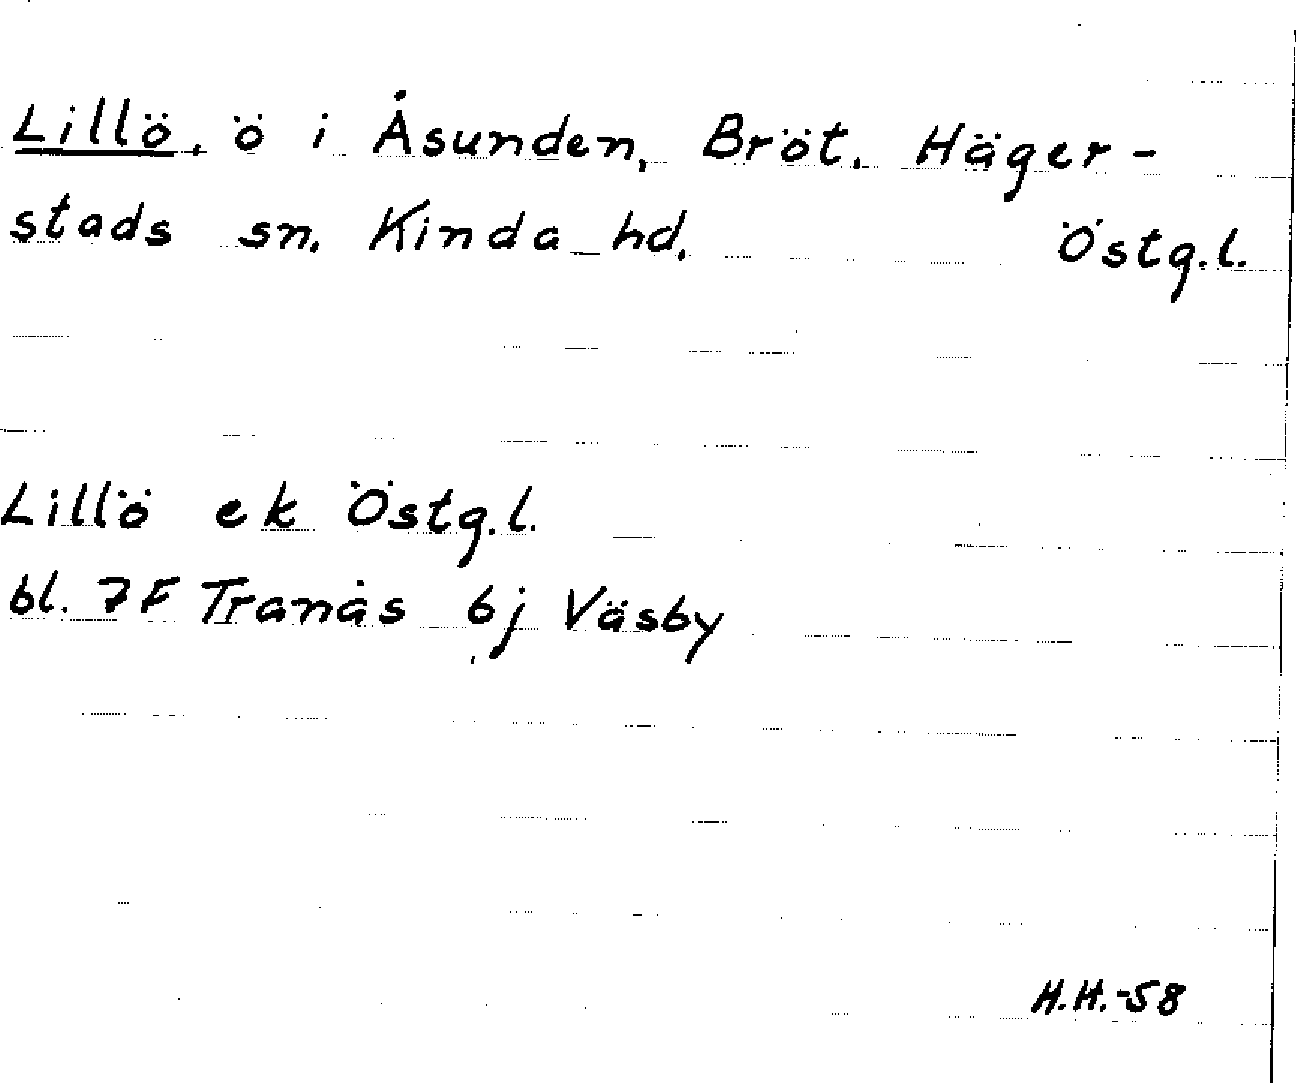 Lillö, ö i Åsunden, Bröt. Häger-
stads sn. Kinda hd. Östg.l.
Lillö ek Östg.l.
bl. 7F Tranås 6j Väsby
H.H.-58